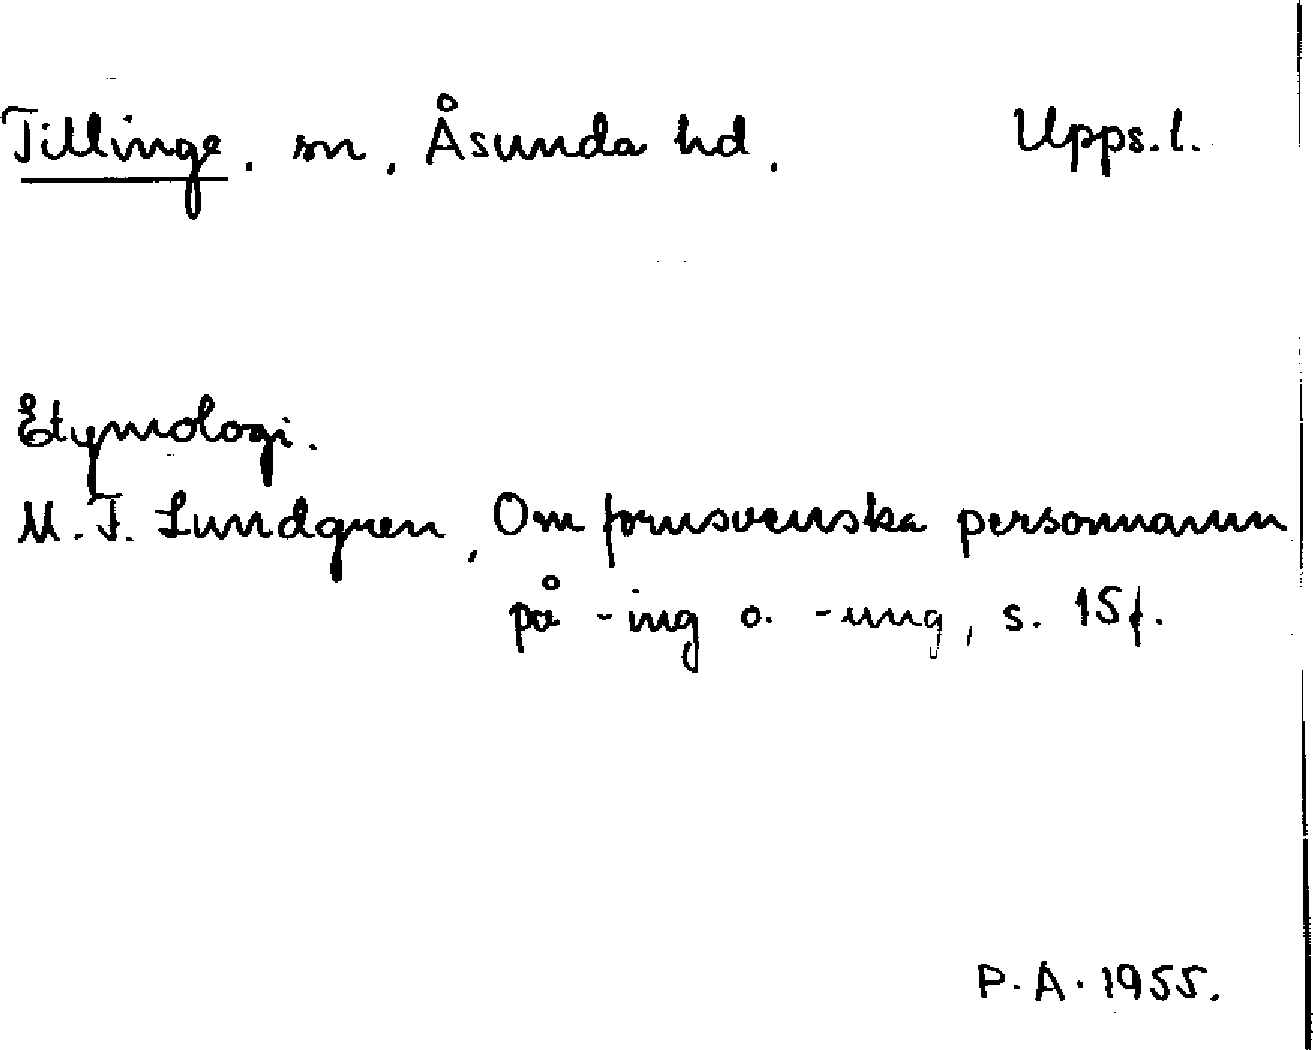 Tillinge. sn, Åsunda hd. Upps.l.
Etymologi.
M. F. Lundgren, Om fornsvenska personnamn
på -ing o. -ung, s. 15f.
P. A. 1955.